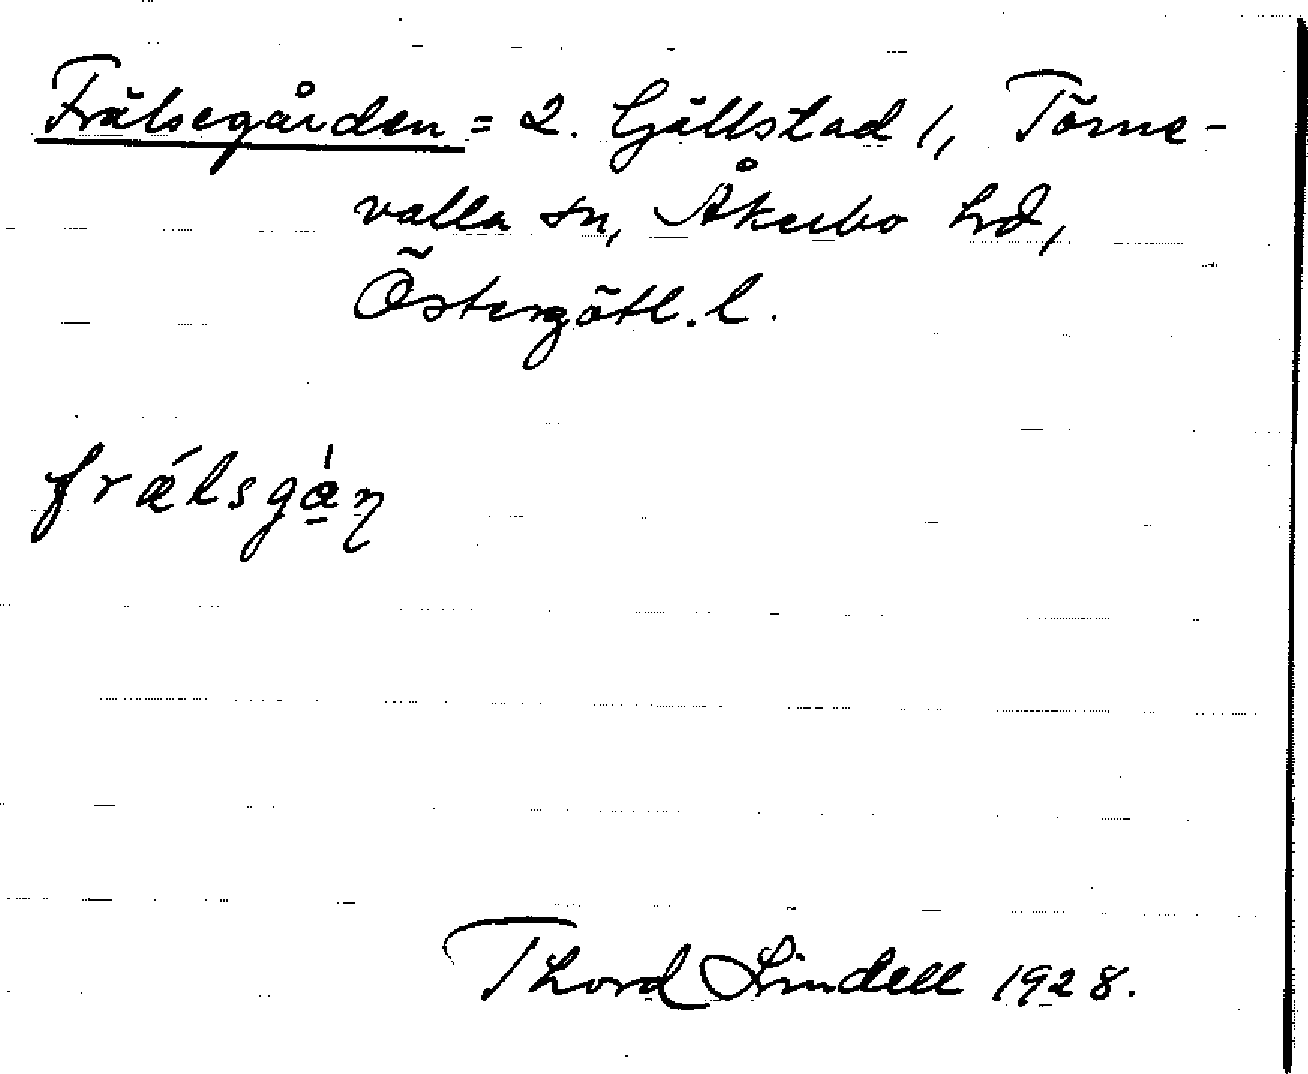 Frälsegården = 2. Gällstad 1, Törne-
valla sn, Åkerbo hd,
Östergötl. l.
frǽlsgàn̥
Thord Lindell 1928.